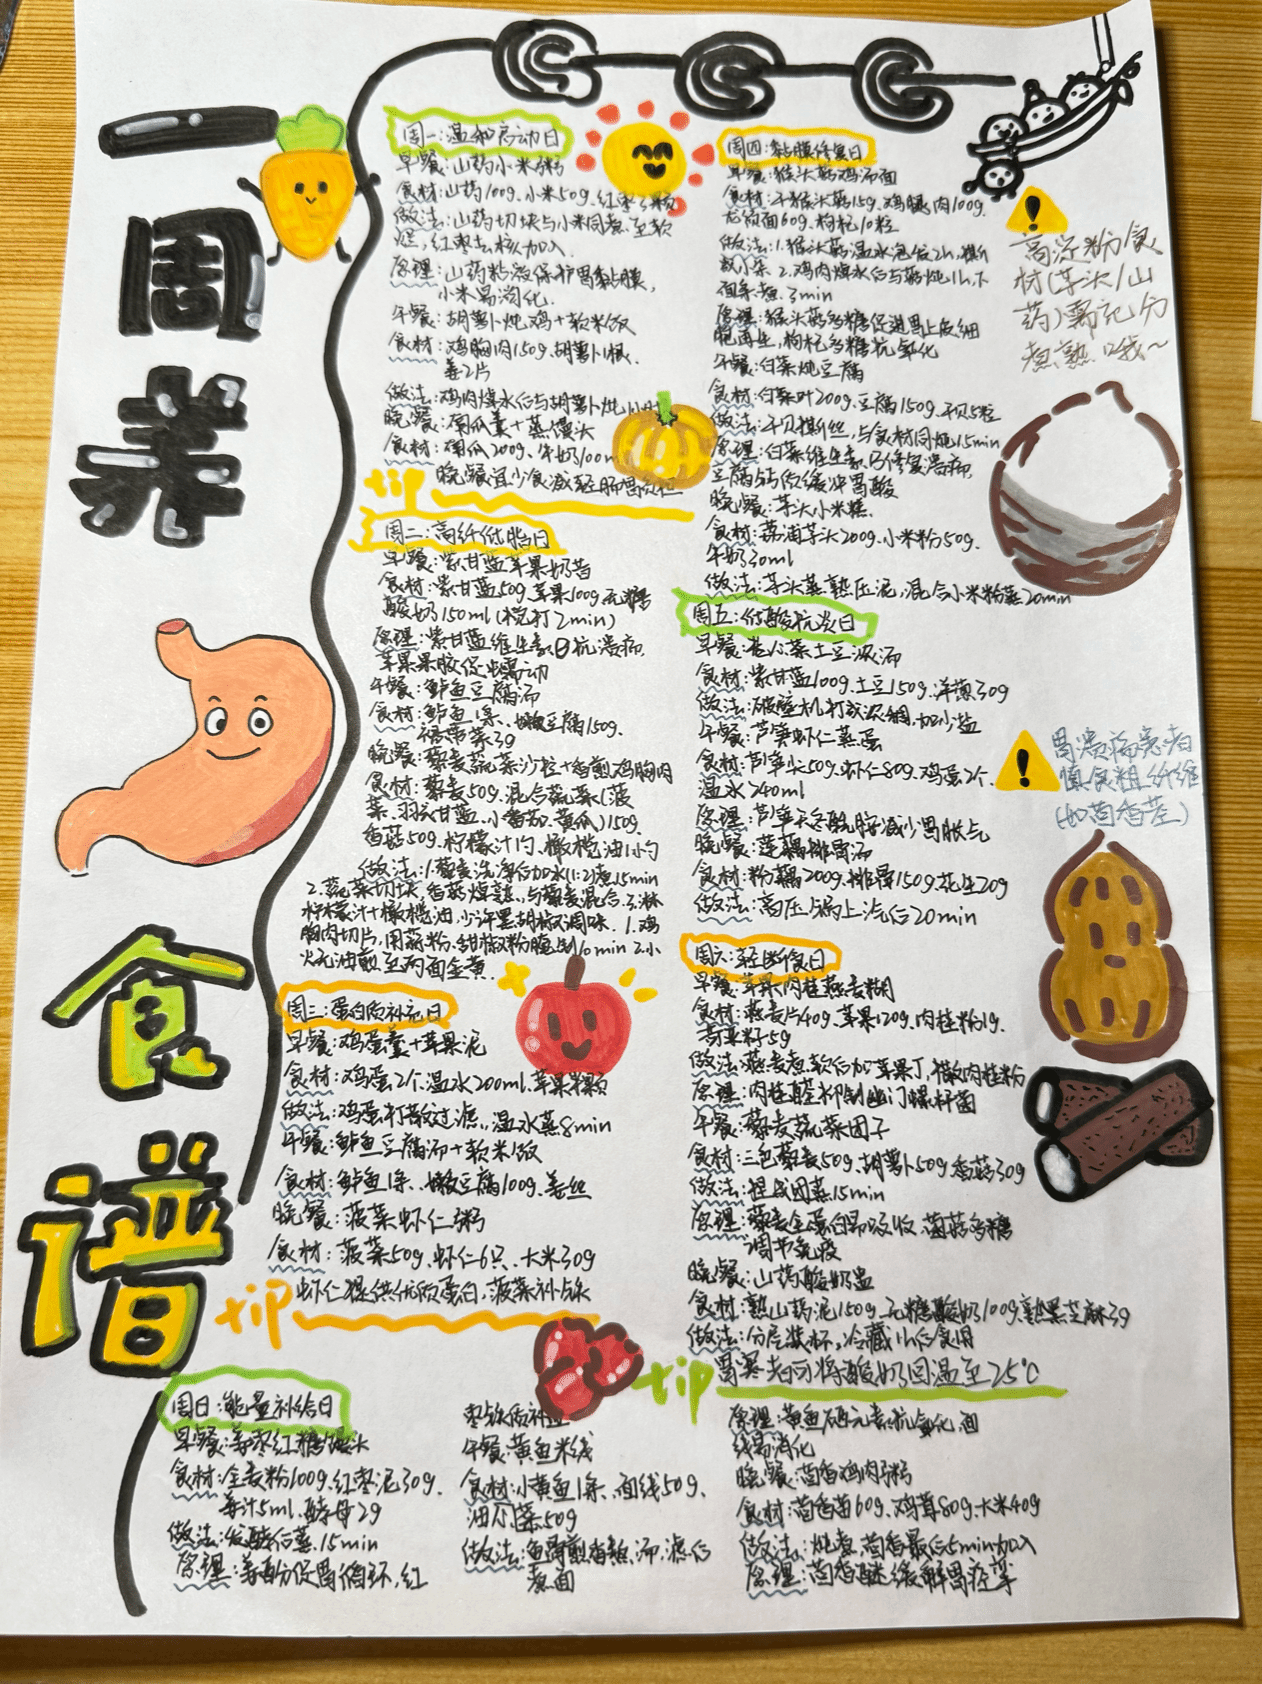 一周养
食谱
周一:温和启动日
早餐:山药小米粥
食材:山药100g、小米50g、红枣3颗
做法:山药切块与小米同煮至软
红枣去核加入
原理:山药粘液保护胃黏膜,
小米易消化.
午餐:胡萝卜炖鸡+软米饭
食材:鸡胸肉150g、胡萝卜1根、
姜2片
做法:鸡肉焯水后与胡萝卜炖1小时
晚餐:南瓜羹+蒸馒头
食材:南瓜200g、牛奶100m
tip 晚餐宜少食减轻肠胃负担
周二:高纤低脂日
早餐:紫甘蓝苹果奶昔
食材:紫甘蓝50g、苹果100g、无糖
酸奶150ml(搅打2min)
原理:紫甘蓝维生素U抗溃疡,
苹果果胶促蠕动
午餐:鲈鱼豆腐汤
食材:鲈鱼1条、嫩豆腐150g、
海带菜3g
晚餐:藜麦蔬菜沙拉+香煎鸡胸肉
食材:藜麦50g、混合蔬菜(菠
菜、羽衣甘蓝、小番茄、黄瓜)150g、
香菇50g、柠檬汁1勺、橄榄油1小勺
做法:1.藜麦洗净后加水(1:2)煮15min
2.蔬菜切块,香菇焯熟,与藜麦混合,3.淋
柠檬汁+橄榄油,少许黑胡椒调味.1.鸡
胸肉切片,用蒜粉、甜椒粉腌制10min 2.小
火无油煎至两面金黄.
周三:蛋白质补充日
早餐:鸡蛋羹+苹果泥
食材:鸡蛋2个、温水200ml、苹果半颗
做法:鸡蛋打散过滤,温水蒸8min
午餐:鲈鱼豆腐汤+软米饭
食材:鲈鱼1条、嫩豆腐100g、姜丝
晚餐:菠菜虾仁粥
食材:菠菜50g、虾仁6只、大米30g
tip 虾仁提供优质蛋白,菠菜补铁
周四:黏膜修复日
早餐:猴头菇鸡汤面
食材:干猴头菇15g、鸡腿肉100g、
龙须面60g、枸杞10粒
做法:1.猴头菇温水泡发2h,撕
成小朵 2.鸡肉焯水后与菇炖1h,下
面条煮3min
原理:猴头菇多糖促进胃上皮细
胞再生,枸杞多糖抗氧化
午餐:白菜炖豆腐
食材:白菜叶200g、豆腐150g、干贝5粒
做法:干贝撕丝,与食材同炖15min
原理:白菜维生素U修复溃疡,
豆腐钙质缓冲胃酸
晚餐:芋头小米糕
食材:荔浦芋头200g、小米粉50g、
牛奶30ml
做法:芋头蒸熟压泥,混合小米粉蒸20min
周五:低酸抗炎日
早餐:卷心菜土豆浓汤
食材:紫甘蓝100g、土豆150g、洋葱30g
做法:破壁机打成浓稠,加少盐
午餐:芦笋虾仁蒸蛋
食材:芦笋尖50g、虾仁80g、鸡蛋2个、
温水240ml
原理:芦笋天冬酰胺减少胃胀气
晚餐:莲藕排骨汤
食材:粉藕200g、排骨150g、花生20g
做法:高压锅上汽后20min
周六:轻断食日
早餐:苹果肉桂燕麦糊
食材:燕麦片40g、苹果120g、肉桂粉1g、
奇亚籽5g
做法:燕麦煮软后加苹果丁,撒肉桂粉
原理:肉桂醛抑制幽门螺杆菌
午餐:藜麦蔬菜团子
食材:三色藜麦50g、胡萝卜50g、香菇30g
做法:捏成团蒸15min
原理:藜麦全蛋白易吸收,菌菇多糖
调节免疫
晚餐:山药酸奶盅
食材:熟山药泥150g、无糖酸奶100g、熟黑芝麻3g
做法:分层装杯,冷藏1h后食用
tip 胃寒者可将酸奶回温至25℃
高淀粉食
材(芋头/山
药)需充分
煮熟哦~
胃溃疡患者
慎食粗纤维
(如茴香茎)
周日:能量补给日
早餐:姜枣红糖馒头
食材:全麦粉100g、红枣泥30g、
姜汁5ml、酵母2g
做法:发酵后蒸15min
原理:姜酚促胃循环,红
枣铁质补血
午餐:黄鱼米线
食材:小黄鱼1条、面线50g、
油菜50g
做法:鱼骨煎香熬汤,滤后
煮面
原理:黄鱼硒元素抗氧化,面
线易消化
晚餐:茴香鸡肉粥
食材:茴香苗60g、鸡茸80g、大米40g
做法:炖煮,茴香最后5min加入
原理:茴香醚缓解胃痉挛